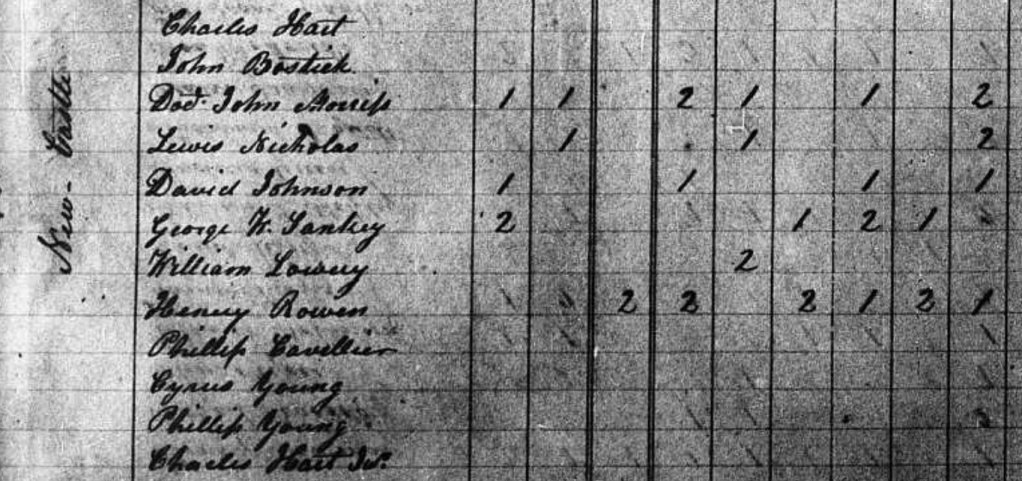 New-Castle
Charles Hart
John Bostick
Doct. John Morriss 1 1 2 1 1 2
Lewis Nicholas 1 1 2
David Johnson 1 1 1 1
George K. Sankey 2 1 2 1
William Lowery 2
Henry Rowen 2 2 2 1 2 1
Phillip Cavellier
Cyrus Young
Phillip Young
Charles Hart Jr.